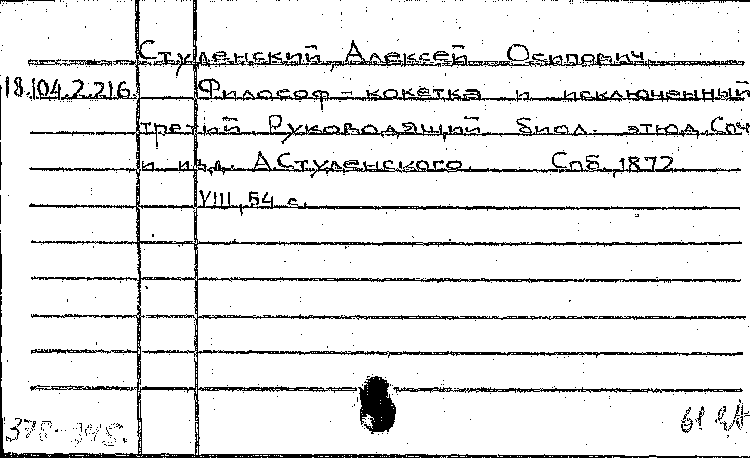 Студенский, Алексей Осипович
18.104.2.216. Философ-кокетка и исключенный
третий. Руководящий биол. этюд. Соч.
и изд. А.Студенского. Спб, 1872
VIII, 54 с.
378-348.